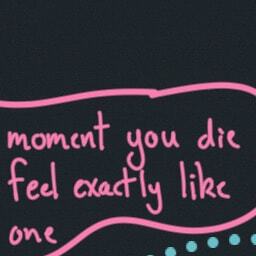 moment you die
feel exactly like
one